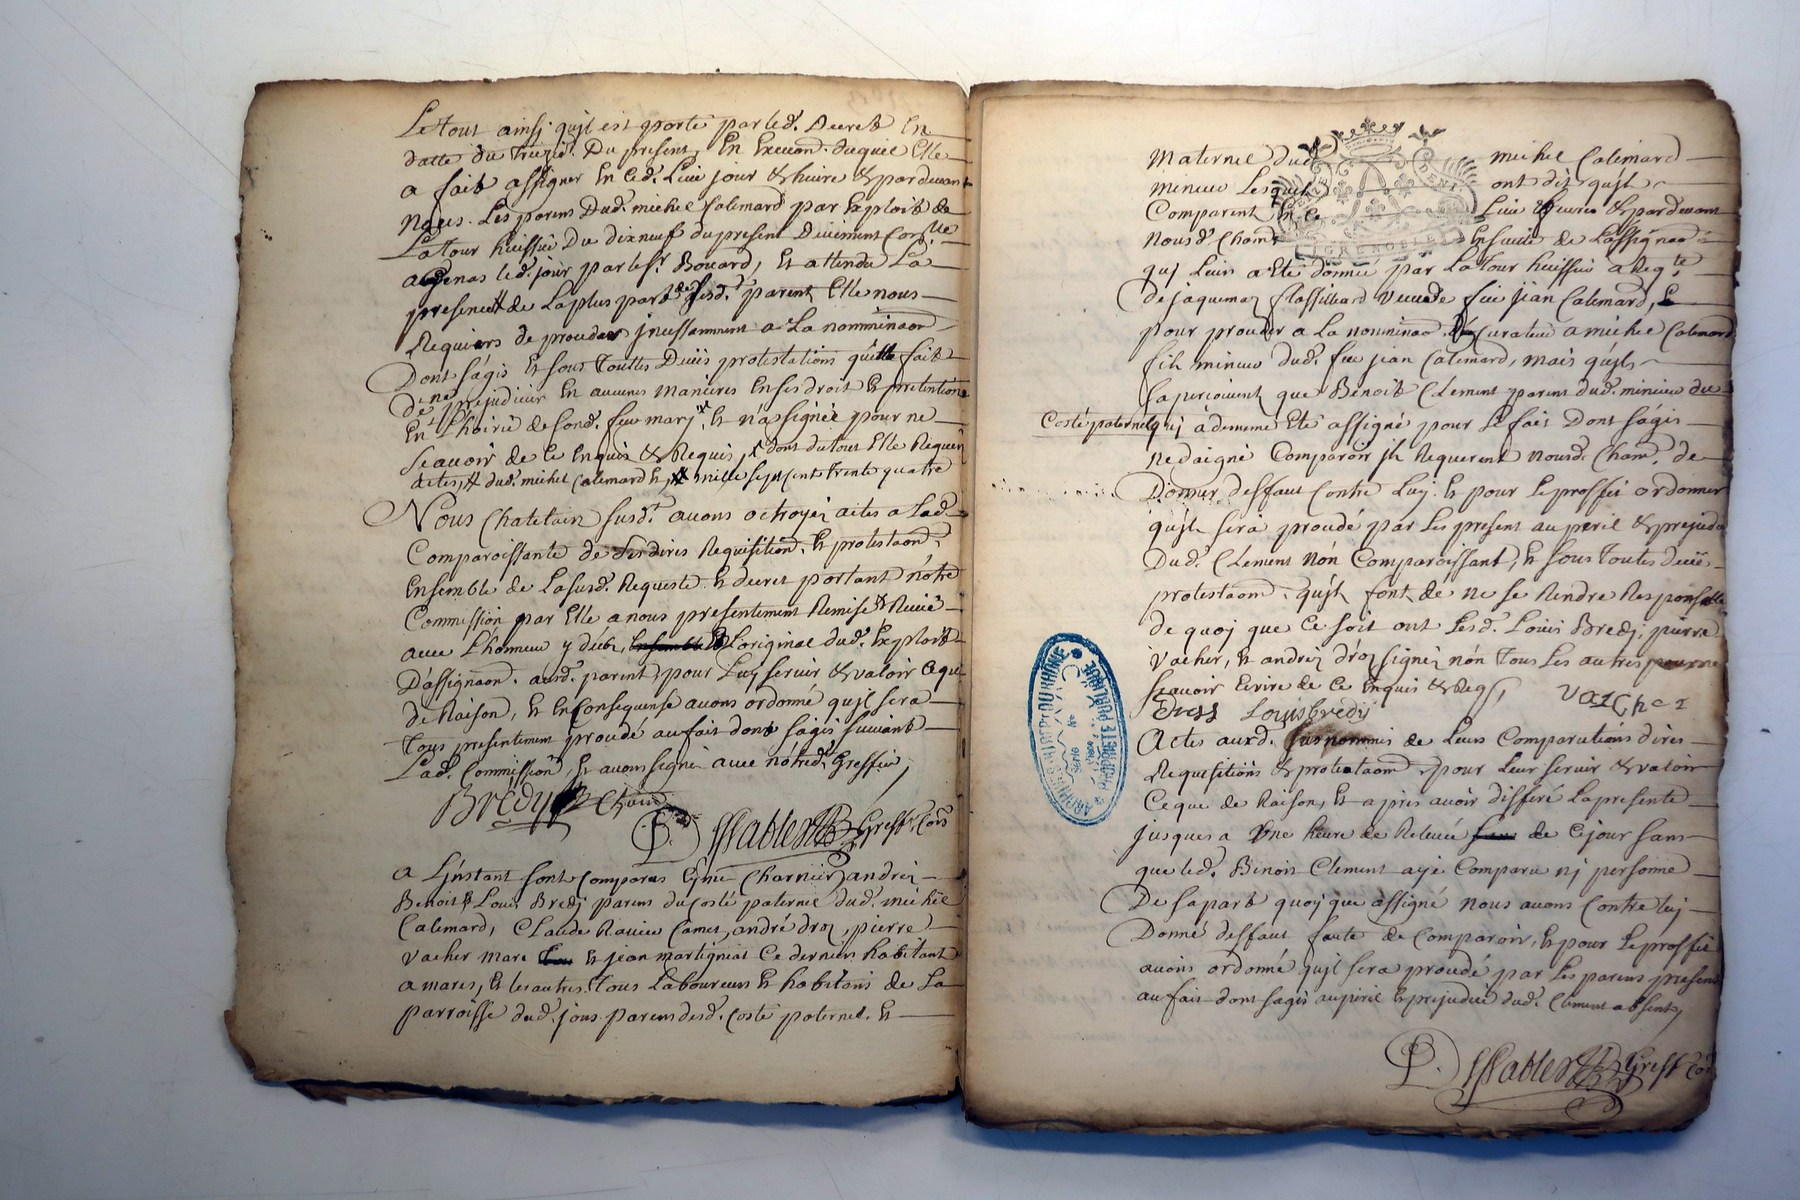 Le tout ainsj qujl est porté par led. Decret En
datte du Treizie. Du present, En Execuon. duquel Elle
a fait assigner En Ced. Lieu jour & heure & pardevant
Nous. Les parens Dud. michel Calemard par Exploit de
La Tour huissier Du dixneuf du present Duement Con.lle
led. jour par le sr. Bouard, Et attendu La
presence de La plus part desd. parent Elle nous
Requiers de proceder jncessamment a La nomminaon
Dont s'agis Et sous Touttes Deües protestations qu'elle fait
De ne prejudicier En aucunes manieres En ses droit Et pretentions
En L'hoirie de sond. feu mary, Et n'a signée pour ne
scavoir de Ce Enquis & Requis, dont du tout Elle Requier
actes, dud. michel Calemard Et mille sept Cent trente quatre
Nous Chatelain susd.t avons octroyez actes a Lad.
Comparoissante de Ses dires Requisition. Et protestaon.
Ensemble de La susd. Requeste Et decret portant nôtre
Commission par Elle a nous presentement Remise & Receüe
avec L'honneur y deub, L'original dud. Exploit
D'assignaon. ausd. parent pour Luy servir & valoir Ceque
de Raison, Et En Consequense avons ordonné qujl sera
Tous presentement procedé au fait dont s'agis suivant
Lad. Commission, Et avons signé avec nôtred. Greffier,
Bredy Chain
Greff. Com
a L'jnstant sont Comparus Eyme Charnier, andréz
Benoit & Louis Bredj parens du Costé paternel dud. michel
Calemard, Claude Ravier Camet, andré droz, pierre
Vacher mare Et jean martignias Ce dernier habitant
a mares, Et les autres Tous Laboureurs Et habitans de La
parroisse dud. jons parens desd. Costé paternel. Et
maternel dud. michel Calemard
mineur Lesquels ont dit qujls
Comparent En Ce Lieu & heure & pardevant
Nous d. Cham. Ensuite de L'assignaon
GRENOBLE
quj Leurs a Eté donnée par La Tour huissier a Reqte
De jaquemaz flassilliard veuve de feu jean Calemard, Et
pour proceder a La nominaon. de Curateur a michel Calemard
fils mineur dud. feu jean Calemard, mais qujls
sapercoivent que Benoit Clement parent dud. mineur du
Costé paternel quj à dememe Eté assigné pour Le fait Dont s'agis
Ne daigne Comparoir jls Requerent nousd. Cham. de
Donner deffaut Contre Luy. Et pour Le proffit ordonner
qujl sera procedé par Les present au peril & prejudice
Dud. Clement nón Comparoissant, Et sous Toutes deües
protestaons. qujls font de ne se Rendre Responsable
de quoj que Ce soit ont Lesd. Louis Bredj, pierre
Vacher, Et andréz dróz signéz nón Tous Les autres pour ne
scavoir Ecrire de Ce Enquis & Reqs,
Vaicher
Louis bredy
Actes ausd. susnommés de Leurs Comparutións dires
Requisitiòns & protestaons. pour Leur servir & valoir
Ceque de Raison, Et apres avoir differé La presente
jusques a Une heure de Relevée de Cejour sans
que led. Benoit Clement ayé Comparu nj personne
De sa part quoj que assigné nous avons Contre luj
Donné deffaut faute de Comparoir, Et pour Le proffit
avons ordonné qujl sera procedé par Les parens present
au fait dont s'agis au peril & prejudice dud. Clement absent,
Greff. Com
ARCHIVES DU DEPT DU RHÔNE
Série
No
PROPRIÉTÉ PUBLIQUE